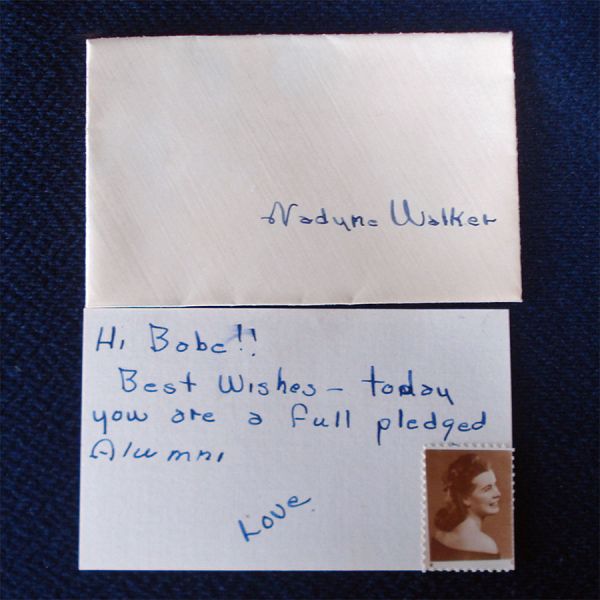 Nadyne Walker
Hi Babe!!
Best Wishes – today
you are a full pledged
Alumni
Love